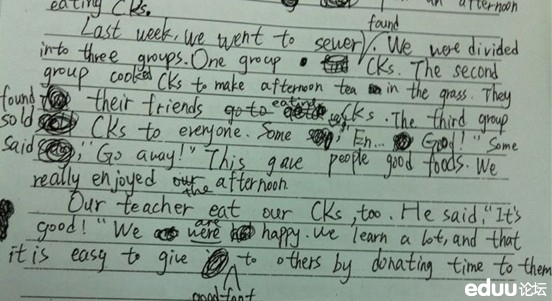 eating CKs. an afternoon
found
Last week, we went to sewer. We were divided
into three groups. One group CKs. The second
group cooked CKs to make afternoon tea in the grass. They
found their friends eating CKs. The third group
sold CKs to everyone. Some "En... Good!" Some
said, "Go away!" This gave people good foods. We
really enjoyed the afternoon.
Our teacher eat our CKs, too. He said, "It's
good!" We are happy. We learn a lot, and that
it is easy to give to others by donating time to them
good
eduu论坛